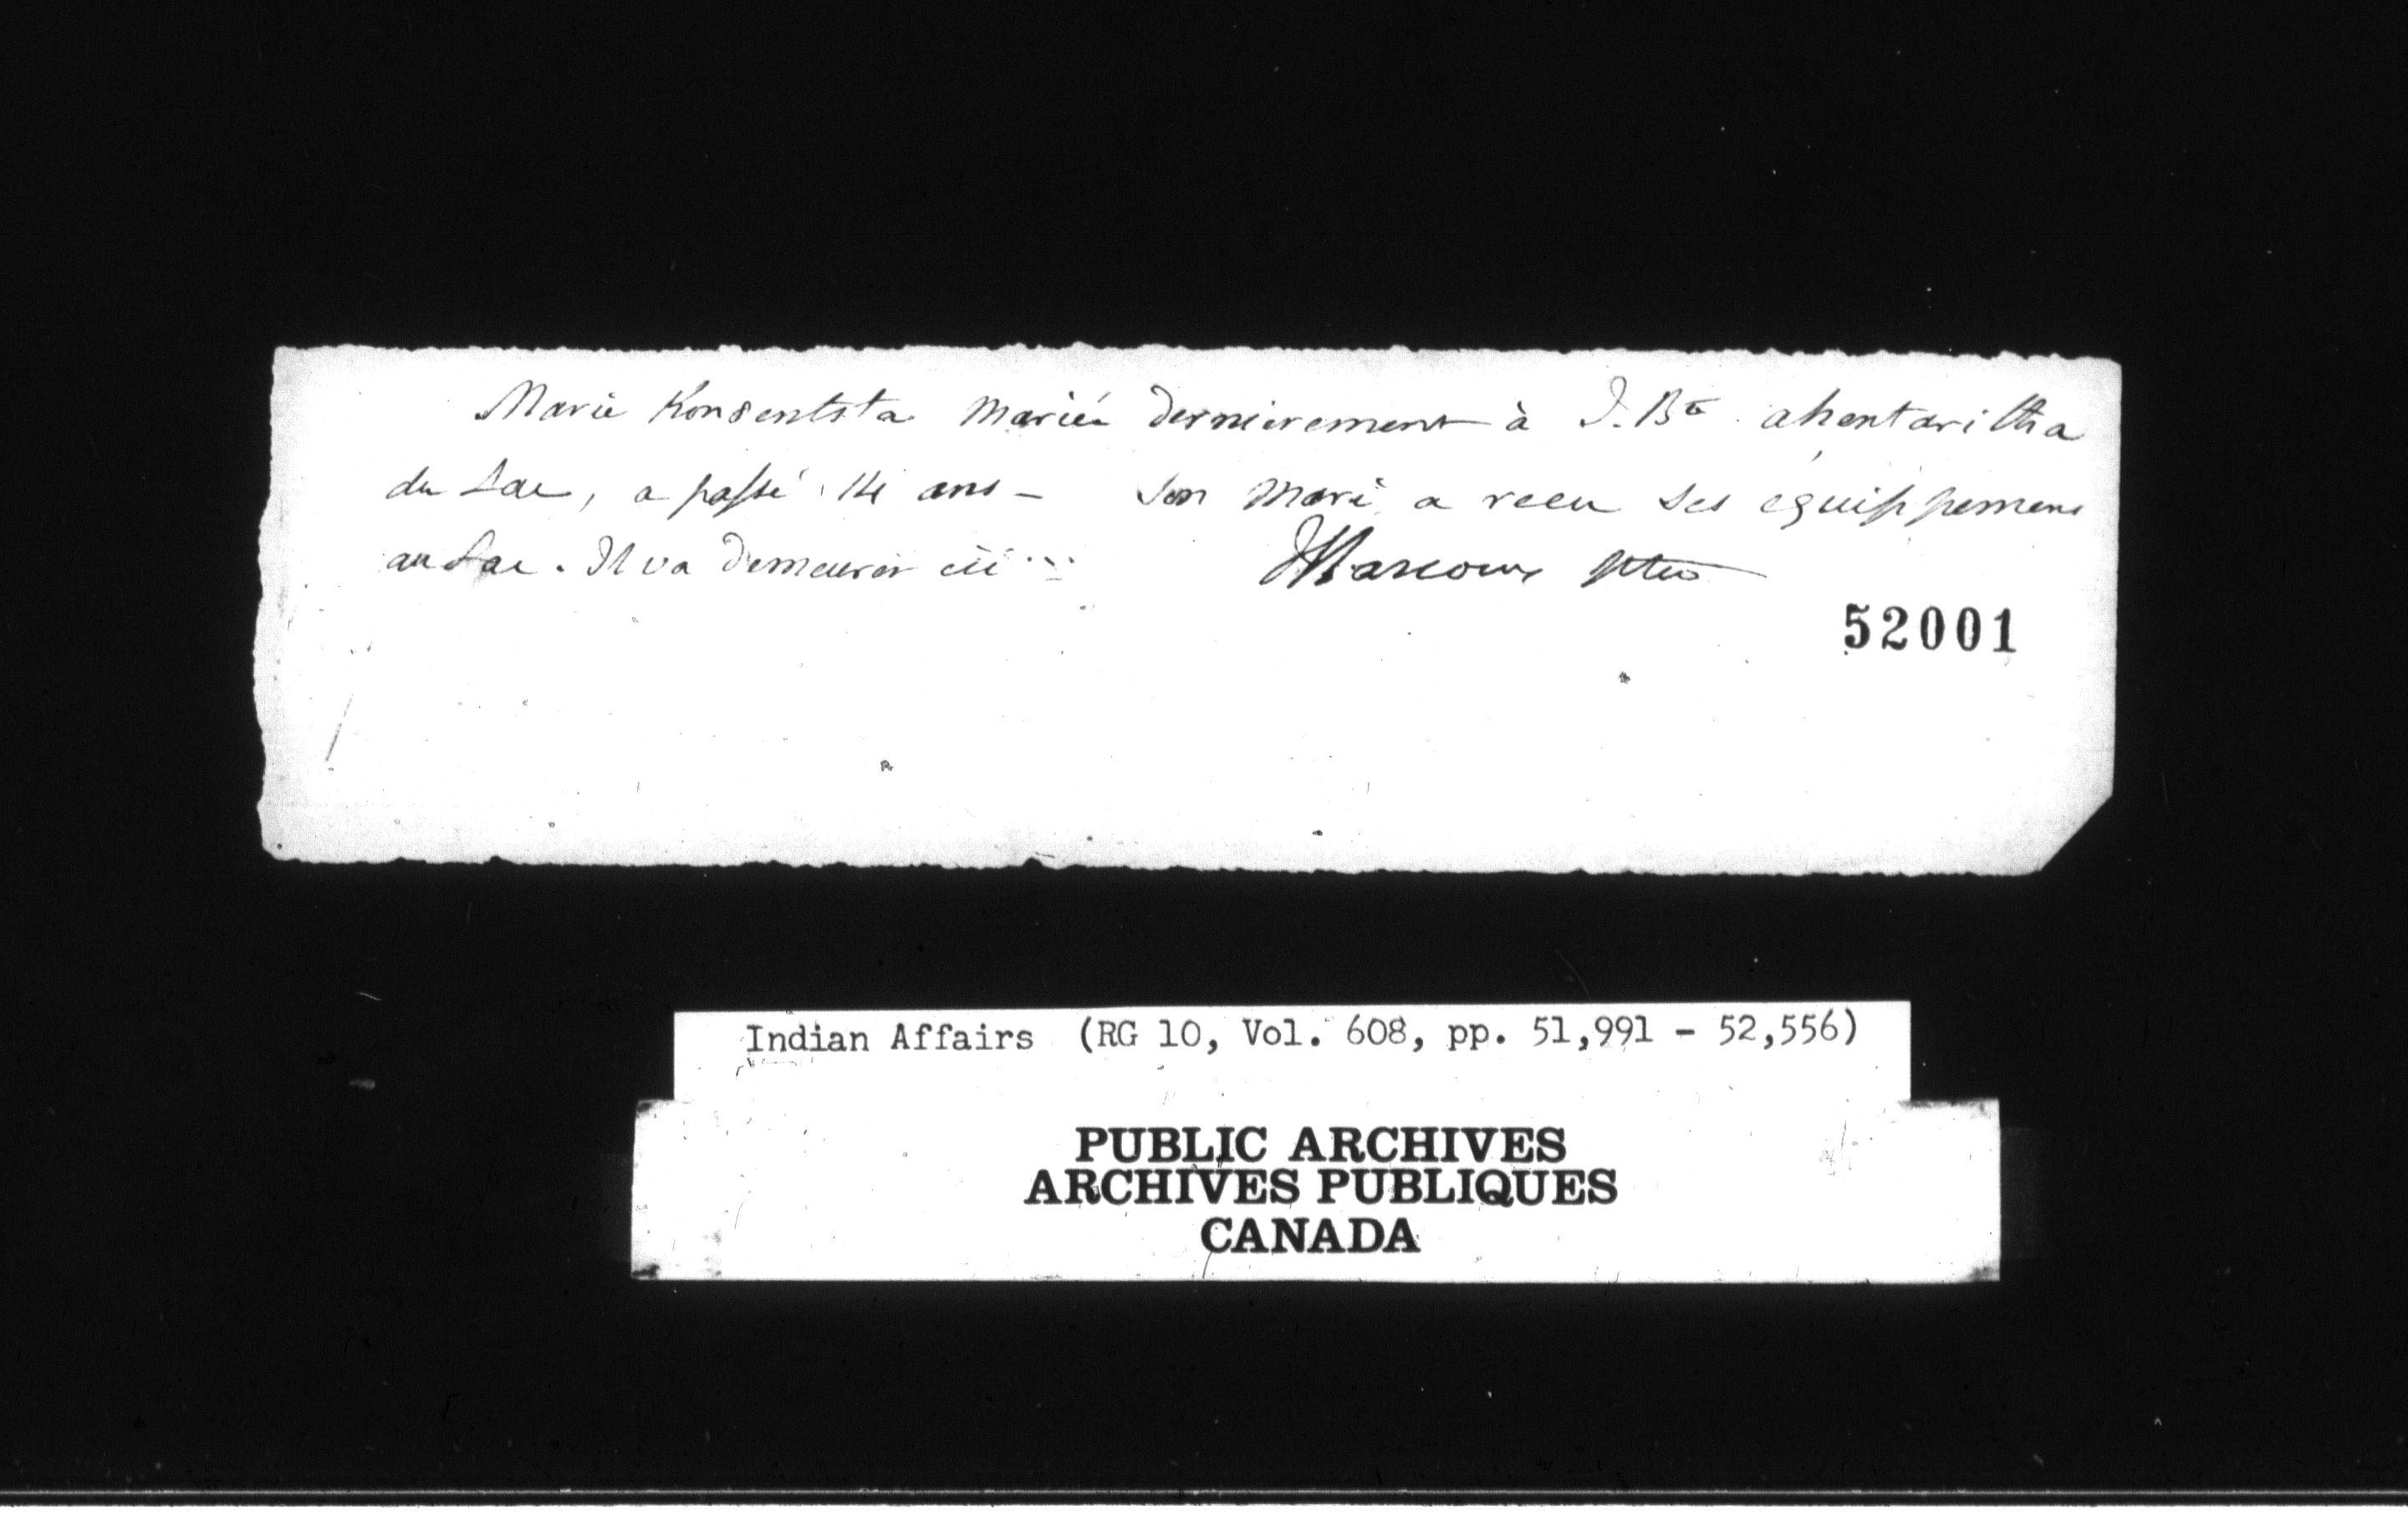 Marie Konsentsta mariée dernierement à J. Bte ahentaritha
du Lac, a passé 14 ans - Son mari a recu ses équippemens
au Lac. Il va demeurer ici
JMarcoux Ptre
52001
Indian Affairs (RG 10, Vol. 608, pp. 51,991 - 52,556)
PUBLIC ARCHIVES
ARCHIVES PUBLIQUES
CANADA